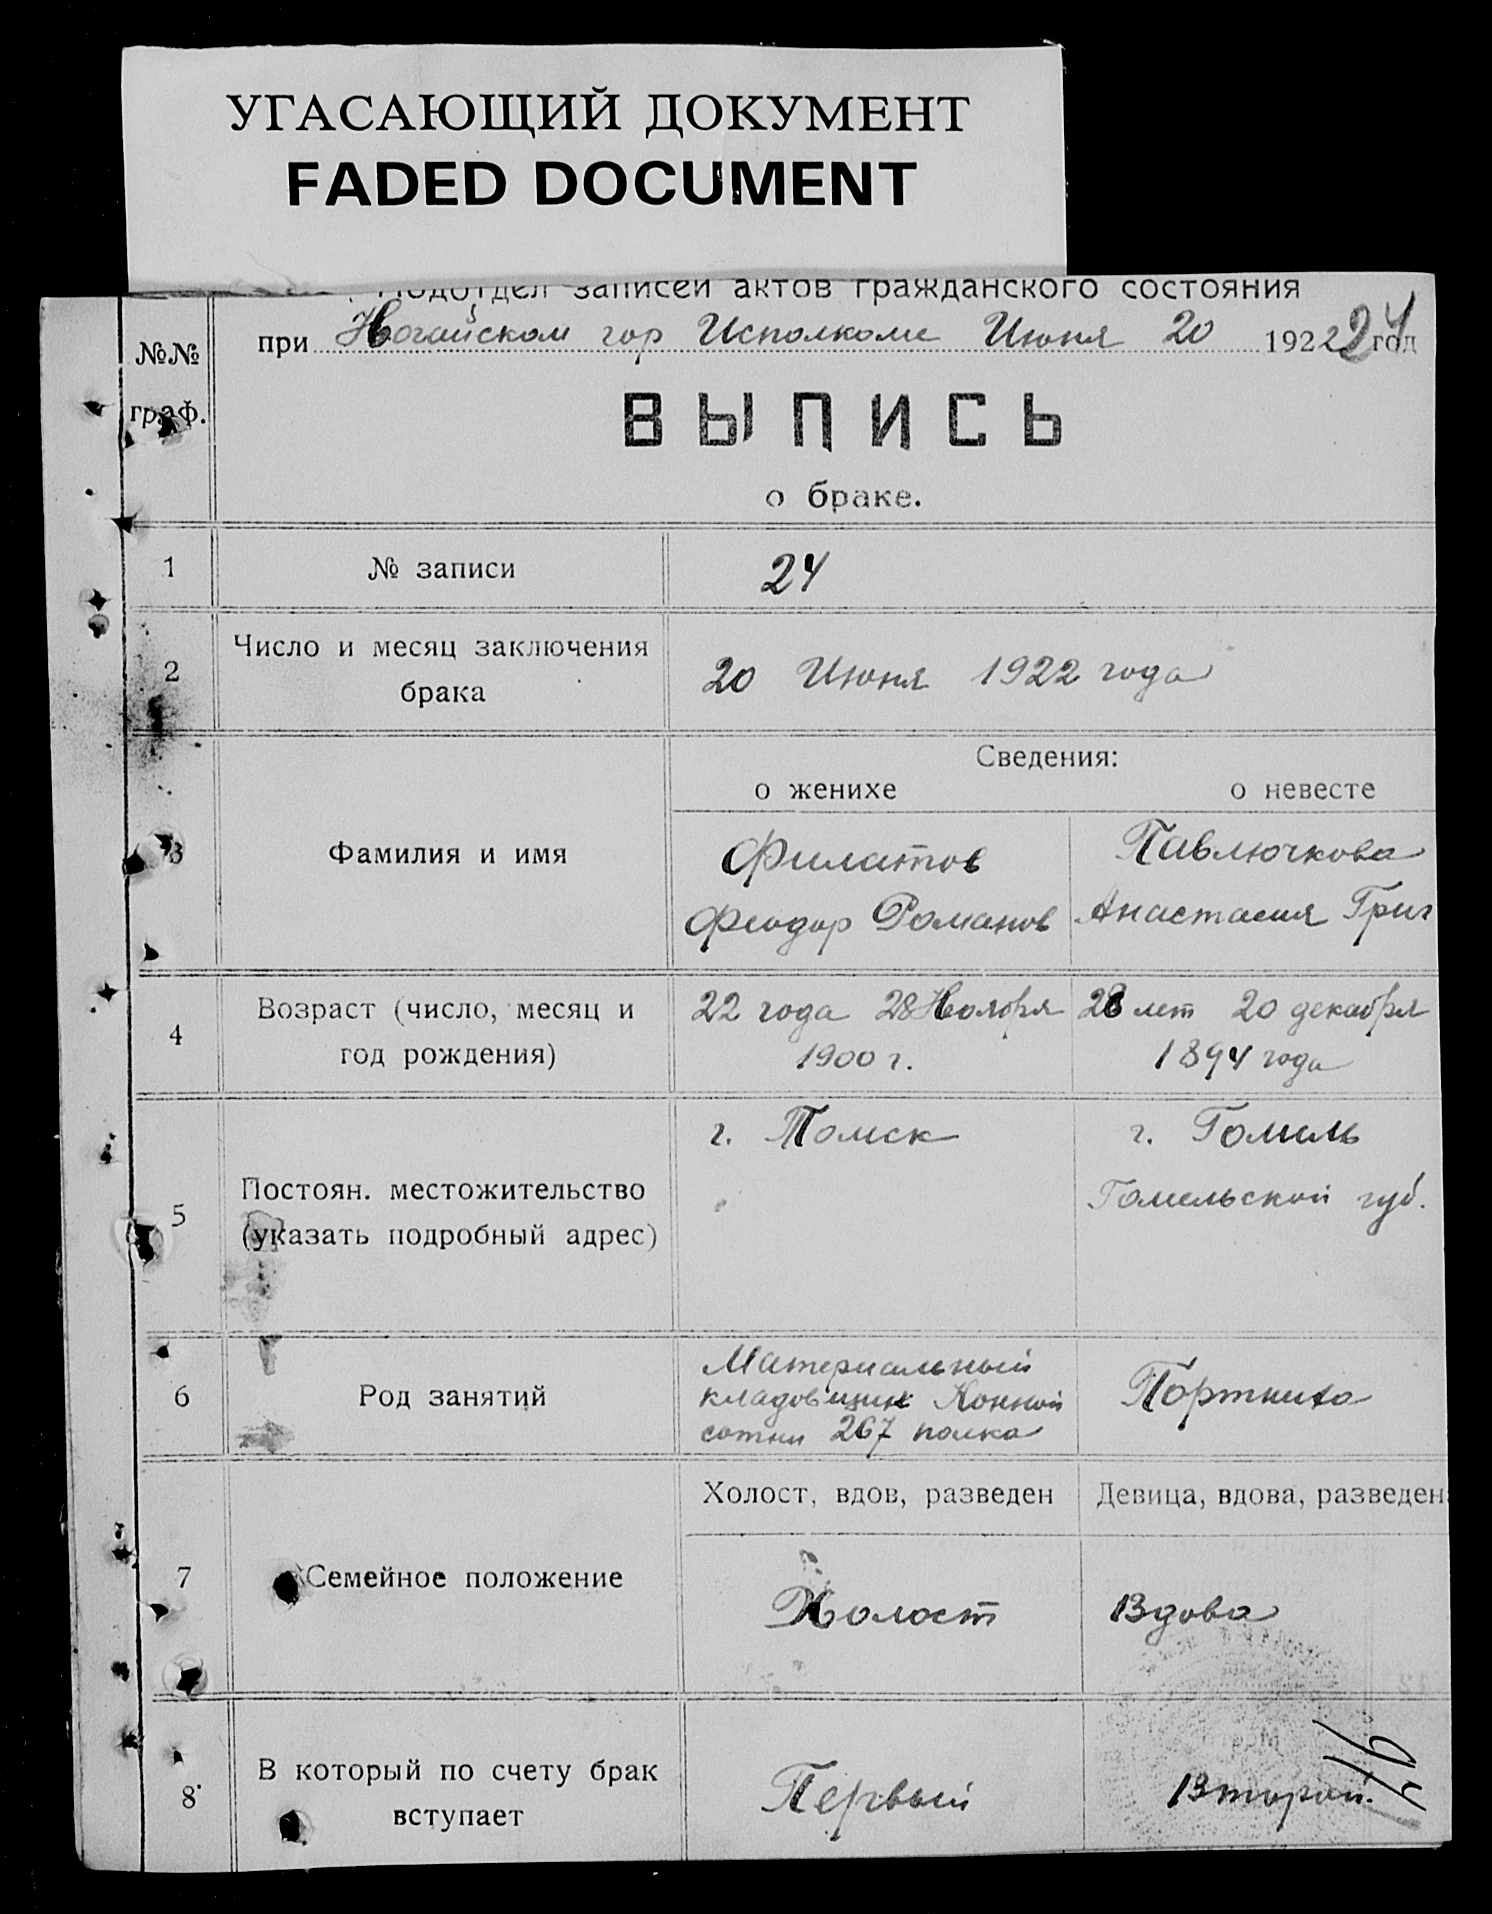 УГАСАЮЩИЙ ДОКУМЕНТ
FADED DOCUMENT
Подотдел записей актов гражданского состояния
при Ногайском гор Исполкоме Июня 20 1922 год
24
№№
граф.
ВЫПИСЬ
о браке.
1 № записи 24
2 Число и месяц заключения
брака
20 Июня 1922 года
Сведения:
о женихе о невесте
3 Фамилия и имя
Филатов Павлючкова
Феодор Романов Анастасия Григ
4 Возраст (число, месяц и
год рождения)
22 года 28 Ноября 28 лет 20 декабря
1900 г. 1894 года
5 Постоян. местожительство
(указать подробный адрес)
г. Томск г. Гомель
Гомельской губ.
6 Род занятий
Материальный
кладовщик Конной
сотни 267 полка
Портниха
Холост, вдов, разведен Девица, вдова, разведен
7 Семейное положение
Холост Вдова
8 В который по счету брак
вступает
Первый Второй.